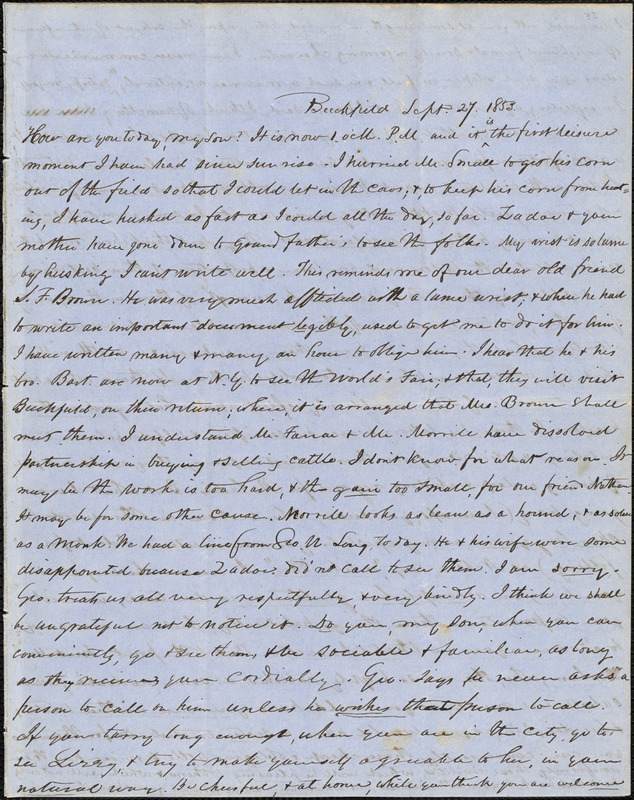 Buckfield Sept. 27, 1853.
How are you today, my Son? It is now 1 oclk. P.M. and it is the first leisure
moment I have had since sun rise. I hurried Mr. Small to get his corn
out of the field so that I could let in th cows, & to keep his corn from heat-
ing, I have husked as fast as I could all the day, so far. Zadoc & your
mother have gone down to Grandfather's to see th folks. My wrist is so lame
by husking I cant write well. This reminds me of our dear old friend
S. F. Brown. He was very much afflicted with a lame wrist, & when he had
to write an important document legibly, used to get me to do it for him.
I have written many & many an hour to oblige him. I hear that he & his
bro. Bart. are now at N.Y. to see th World's Fair, & that they will visit
Buckfield, on their return, when, it is arranged that Mrs. Brown shall
meet them. I understand Mr. Farrar & Mr. Morrill have dissolved
partnership in buying & selling cattle. I dont know for what reason. It
may be th work is too hard, & th gain too small, for our friend Nathan
It may be for some other cause. Morrill looks as lean as a hound, & as sober
as a Monk. We had a line from Geo. W. Long, to day. He & his wife were some
disappointed because Zadoc did'nt call to see them. I am sorry.
Geo. treats us all very respectfully & very kindly. I think we shall
be ungrateful not to notice it. Do you, my son, when you can
conveniently, go & see them, & be sociable & familiar, as long
as they receive you cordially. Geo. says he never asks a
person to call on him unless he wishes that person to call.
If you tarry long enough, when you are in th City, go to
see Lizzy, & try to make yourself agreeable to her, in your
natural way. Be cheerful, & at home, while you think you are welcome